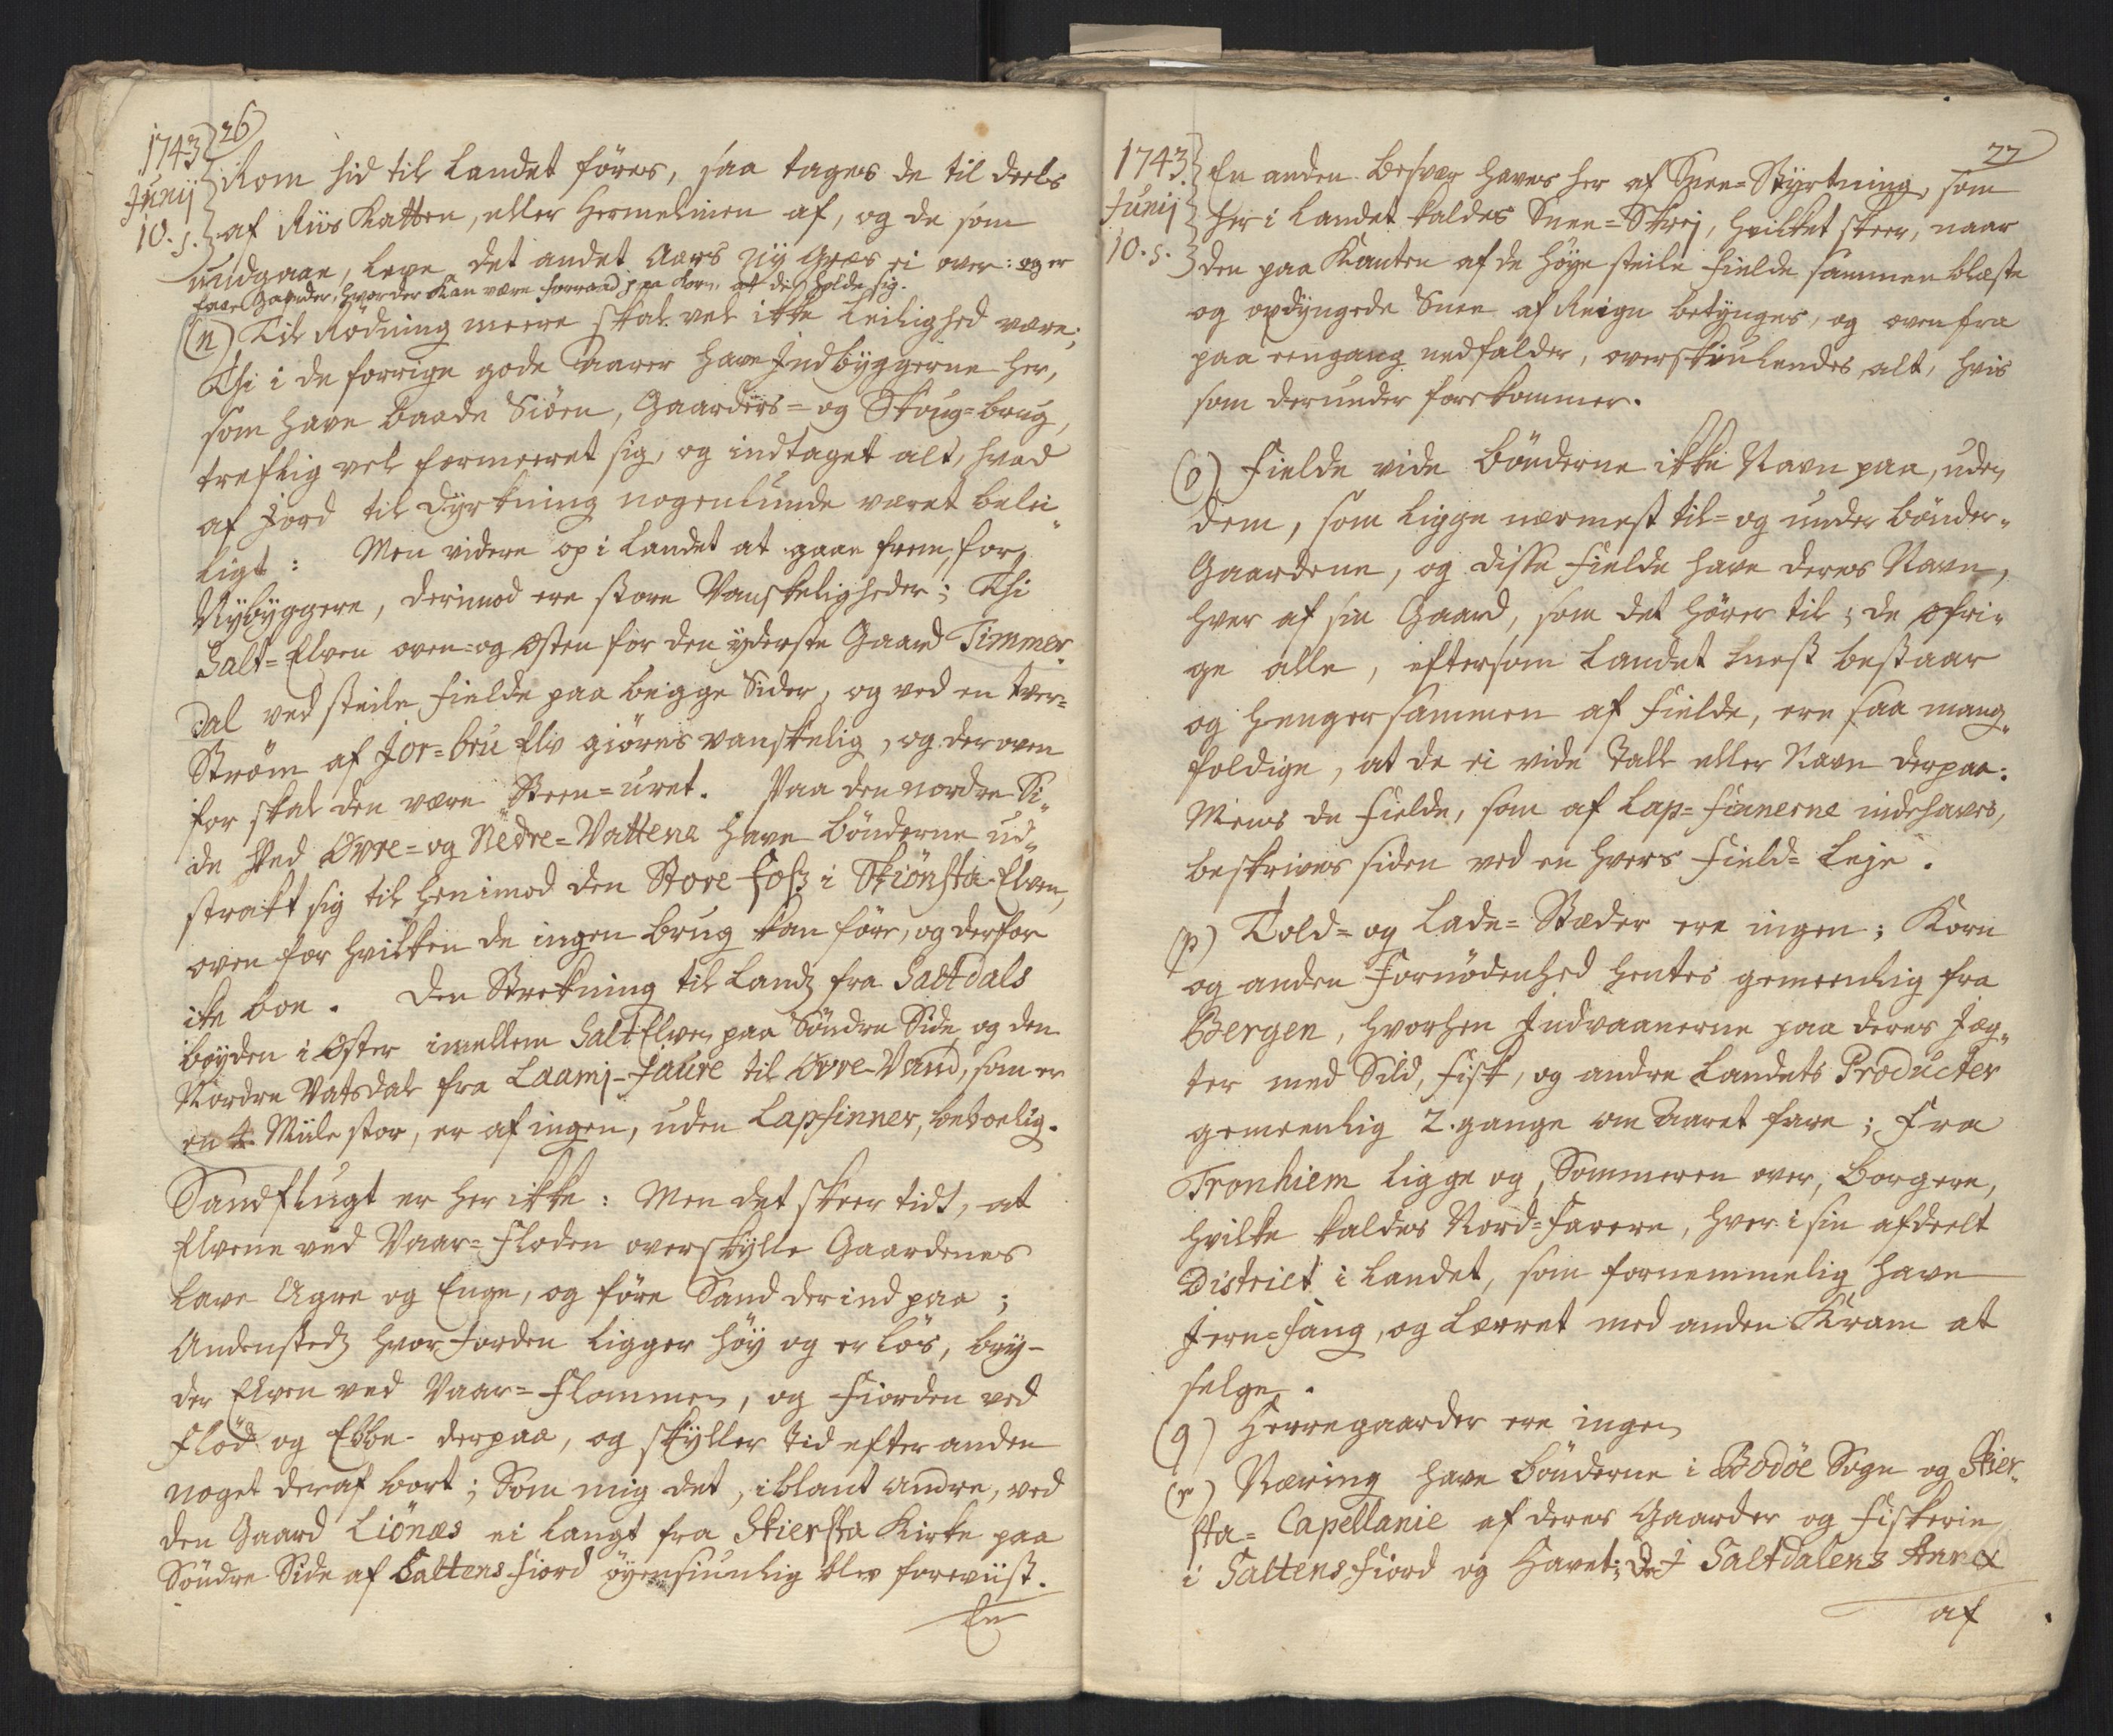 26
1743
Junij
10. s.
Kom hid til Landet föres, saa tages de til deels
af Riis Katten, eller Hermelinen af, og de som
undgaae, leve det andet Aars ny Græs ei over: og er
faae Gaarder, hvor der kan være forraad paa Korn, at de holde sig.
(n) Til Rödning meere skal vel ikke Leilighed være;
Thi i de forrige gode Aarer have Indbyggerne her,
som have baade Siöen, Gaarders= og Skoug=brug,
treflig vel formeeret sig, og indtaget alt, hvad
af Jord til Dyrkning nogenlunde været belei„
ligt: Men videre op i Landet at gaae frem, for
Nybyggere, derimod ere store Vanskeligheder; Thi
Salt=Elven oven=og Østen for den yderste Gaard Timmer„
dal ved steile Fielde paa beigge Sider, og ved en Tver=
Ström af Jor=bru Elv giöres vanskelig, og der oven
for skal den være Steen=uret. Paa den nordre Si„
de ved Øvre=og Nedre=Vattene have Bönderne ud„
strakt sig til henimod den Store Foss i Skiönsta-Elven,
oven for hvilken de ingen brug kan före, og derfor
ike boe. Den Strekning til Lands fra Saltdals
bøyden i Øster imellem Salt Elven paa Söndre Side og den
Nordre Vatsdal fra Laamj-Jaure til Øvre-Vand, som er
en 4. Miile stor, er af ingen, uden Lapfinner, beboelig.
Sandflugt er her ikke: Men det skeer tidt, at
Elvene ved Vaar=Floden overskylle Gaardenes
lave Agre og Enge, og före Sand derind paa;
Andensteds hvor Jorden ligger höy og er lös, bry-
der Elven ved Vaar=Flommen, og Fiorden ved
Flöd og Ebbe derpaa, og skyller tid efter anden
noget deraf bort; Som mig det, iblant andre, ved
den Gaard Liönæs ei langt fra Skiersta Kirke paa
Söndre Side af Saltens Fiord öyensiunlig blev foreviist.
En
77
1743.
Junij
10. s.
En anden Besvær haves her af Snee=Styrtning, som
her i Landet kaldes Snee=Skrej, hvilket skeer, naar
den paa Kanten af de höye steile Fielde sammenblæste
og opdyngede Snee af Reign betynges, og ovenfra
paa eengang nedfalder, overskiulendes alt, hvis
som derunder forekommer.
(o) Fielde vide Bönderne ikke Navn paa, uden
dem, som ligge nærmest til= og under Bönder„
Gaardene, og disse Fielde have deres Navn,
hver af sin Gaard, som det hörer til; de öfri„
ge alle, eftersom Landet hæst bestaar
og henger sammen af Fielde, ere saa mang„
foldige, at de ei vide Tall eller Navn derpaa:
Mens de Fielde, som af Lap=Finnerne indehaves,
beskrives siden ved en hvers Field=Leje.
(p) Told= og Lade=Stæder ere ingen; Korn
og anden Fornödenhed hentes gemeenlig fra
Bergen, hvorhen Indvaanerne paa deres Jæg„
ter med Sild, Fisk, og andre Landets Producter
gemeenlig 2. gange om Aaret fare; Fra
Tronhiem ligge og, Sommeren over, Borgere,
hvilke kaldes Nord=Farere, hver i sin afdeelt
District i Landet, som fornemmelig have
Jern=fang, og Lerret med anden Kram at
selge.
(q) Herregaarder ere ingen
(r) Næring have Bönderne i Bodöe Sogn og Skier„
sta= Capellanie af deres Gaarder og Fiskerie
i Saltens Fiord og Havet; De i Saltdalens Annex
af